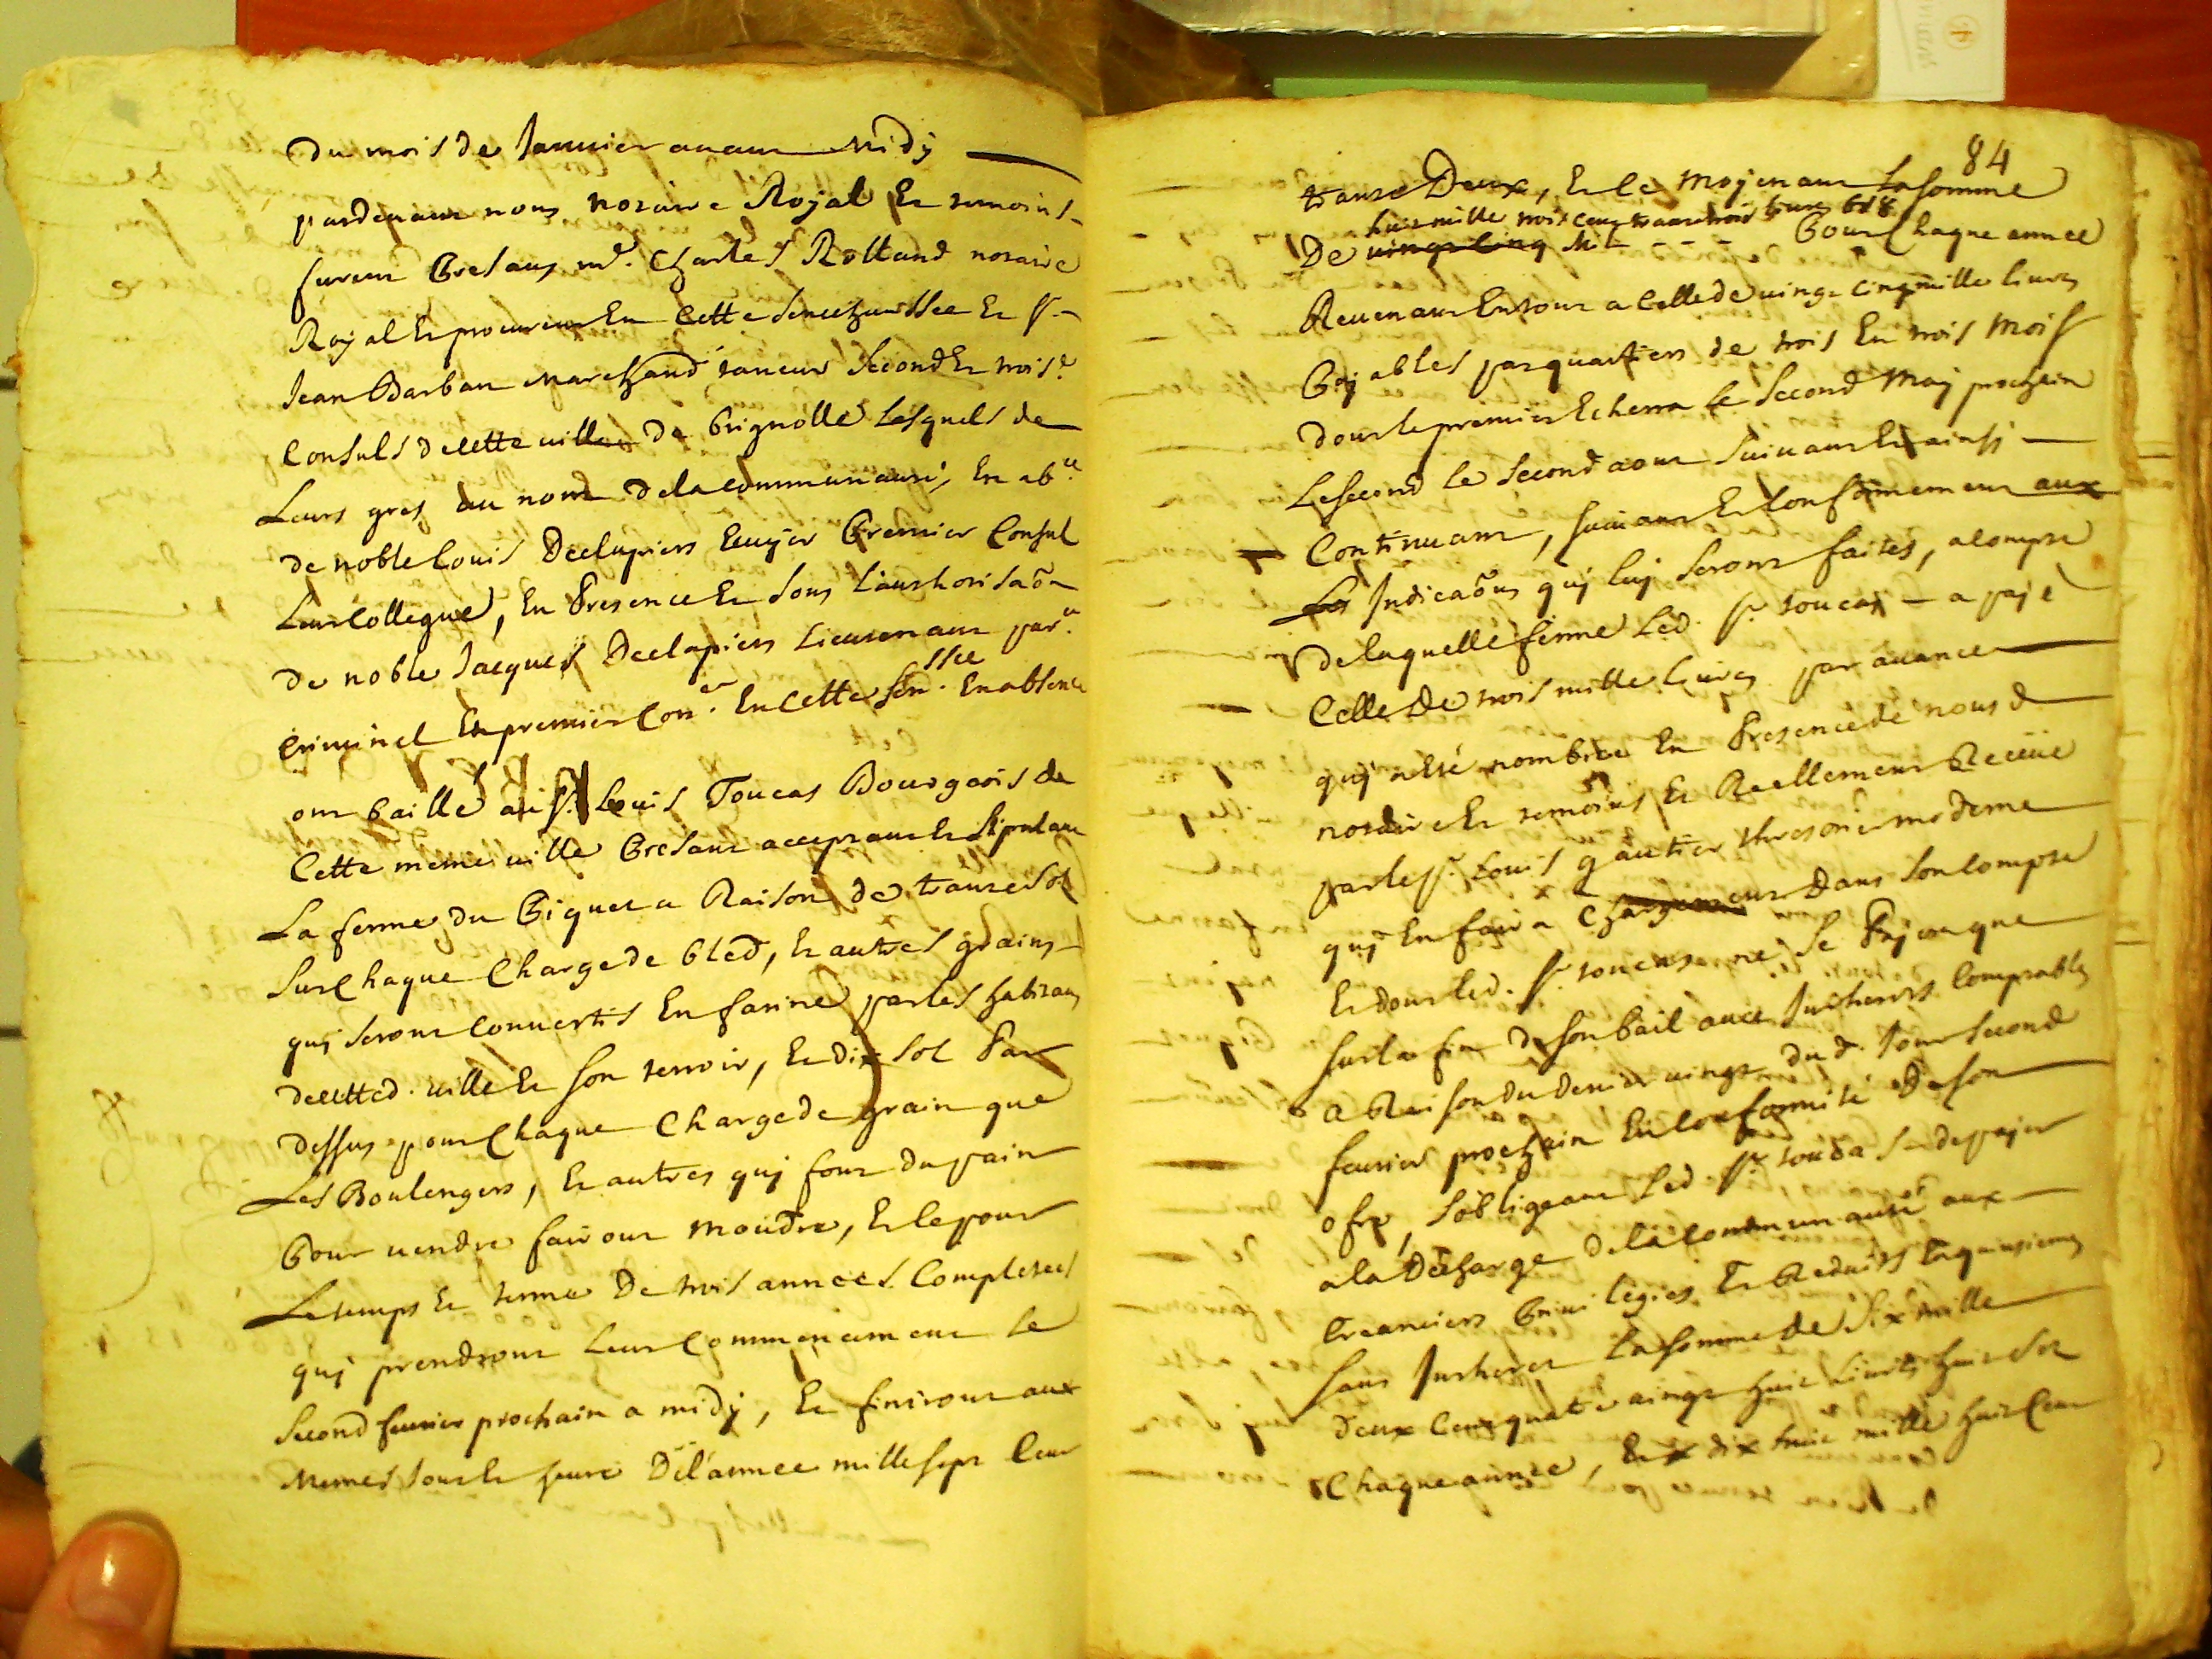 Du mois de Januier auant Midÿ
pardeuant nous notaire Royal Et temoins
furent Presans m.e Charles Rolland notaire
Royal Et procureur En Cette Senechaussée Et s.r
Jean Barban marchand taneur Second Et trois.e
Consuls de cette ville de Brignolle Lesquels de
Leurs gres au nom de la communauté, En ab.ce
de noble Louis Declapiers Ecuÿer Premier Consul
Leur Collegue, En Presence Et Sous L'authorisãon
de noble Jacques Declapiers Lieutenant par.er
Criminel Et premier Con.er En Cette Sen.ssée En absence
ont Baillé au s.r Louis Toucas Bourgeois de
Cette meme ville Presant acceptant Et Stipulant
La ferme du Piquet a Raison de trante Sol
Sur Chaque Charge de Bled, Et autres grains
quÿ Seront Conuertis En farine par les habitans
de cetted. ville Et Son terroir, Et dix Sol Par
dessus pour Chaque Charge de grain que
Les Boulengers, Et autres quÿ font du pain
Pour vendre fairont Moudre, Et le pour
Le temps Et terme De trois années Complettes
quÿ prendront Leur Commencement Le
Second feurier prochain a midÿ, Et finiront aux
Memes Jour Et heure De l'année mille sept Cent
84
trante Deux, Et Le Moÿenant La somme
huit mille trois cent trante trois liures 6 s 8
De vingt cinq M Pour Chaque année
Reuenant En tout a Celle de vingt cinq mille liures
Paÿables par quartiers de trois En trois Mois
dont le premier Echerra Le Second Maÿ prochain
Le second le Second aout Suiuant Et ainsÿ
Continuant, Suiuant Et Conformement aux
Les Indicãons quÿ luÿ Seront faites, a compte
de laquelle ferme Led. s.r toucas a paÿé
Celle De trois mille liures par auance
quÿ a Eté nombrée En Presence de nous d.
notaire Et temoins Et Reellement Receüe
par le s.r Louis gautier thresorier moderne
quÿ En faira Chargement Dans Son Compte
Et dont led. s.r toucas ne Se Paÿera que
sur la fin de Son Bail auec Intherets Comptables
a Raison du denier vingt du d. Jour Second
feurier prochain En Conformité de Son
ofre, S'obligeant Led. s.r toucas de paÿer
a la Décharge de la Communauté aux
Creanciers Priuilegiés Et Reduits
Sans Intheret La Somme de Six mille
deux Cent quatre vingt huit Liures huit Sol
Chaque année, Et dix huit mille huit Cent